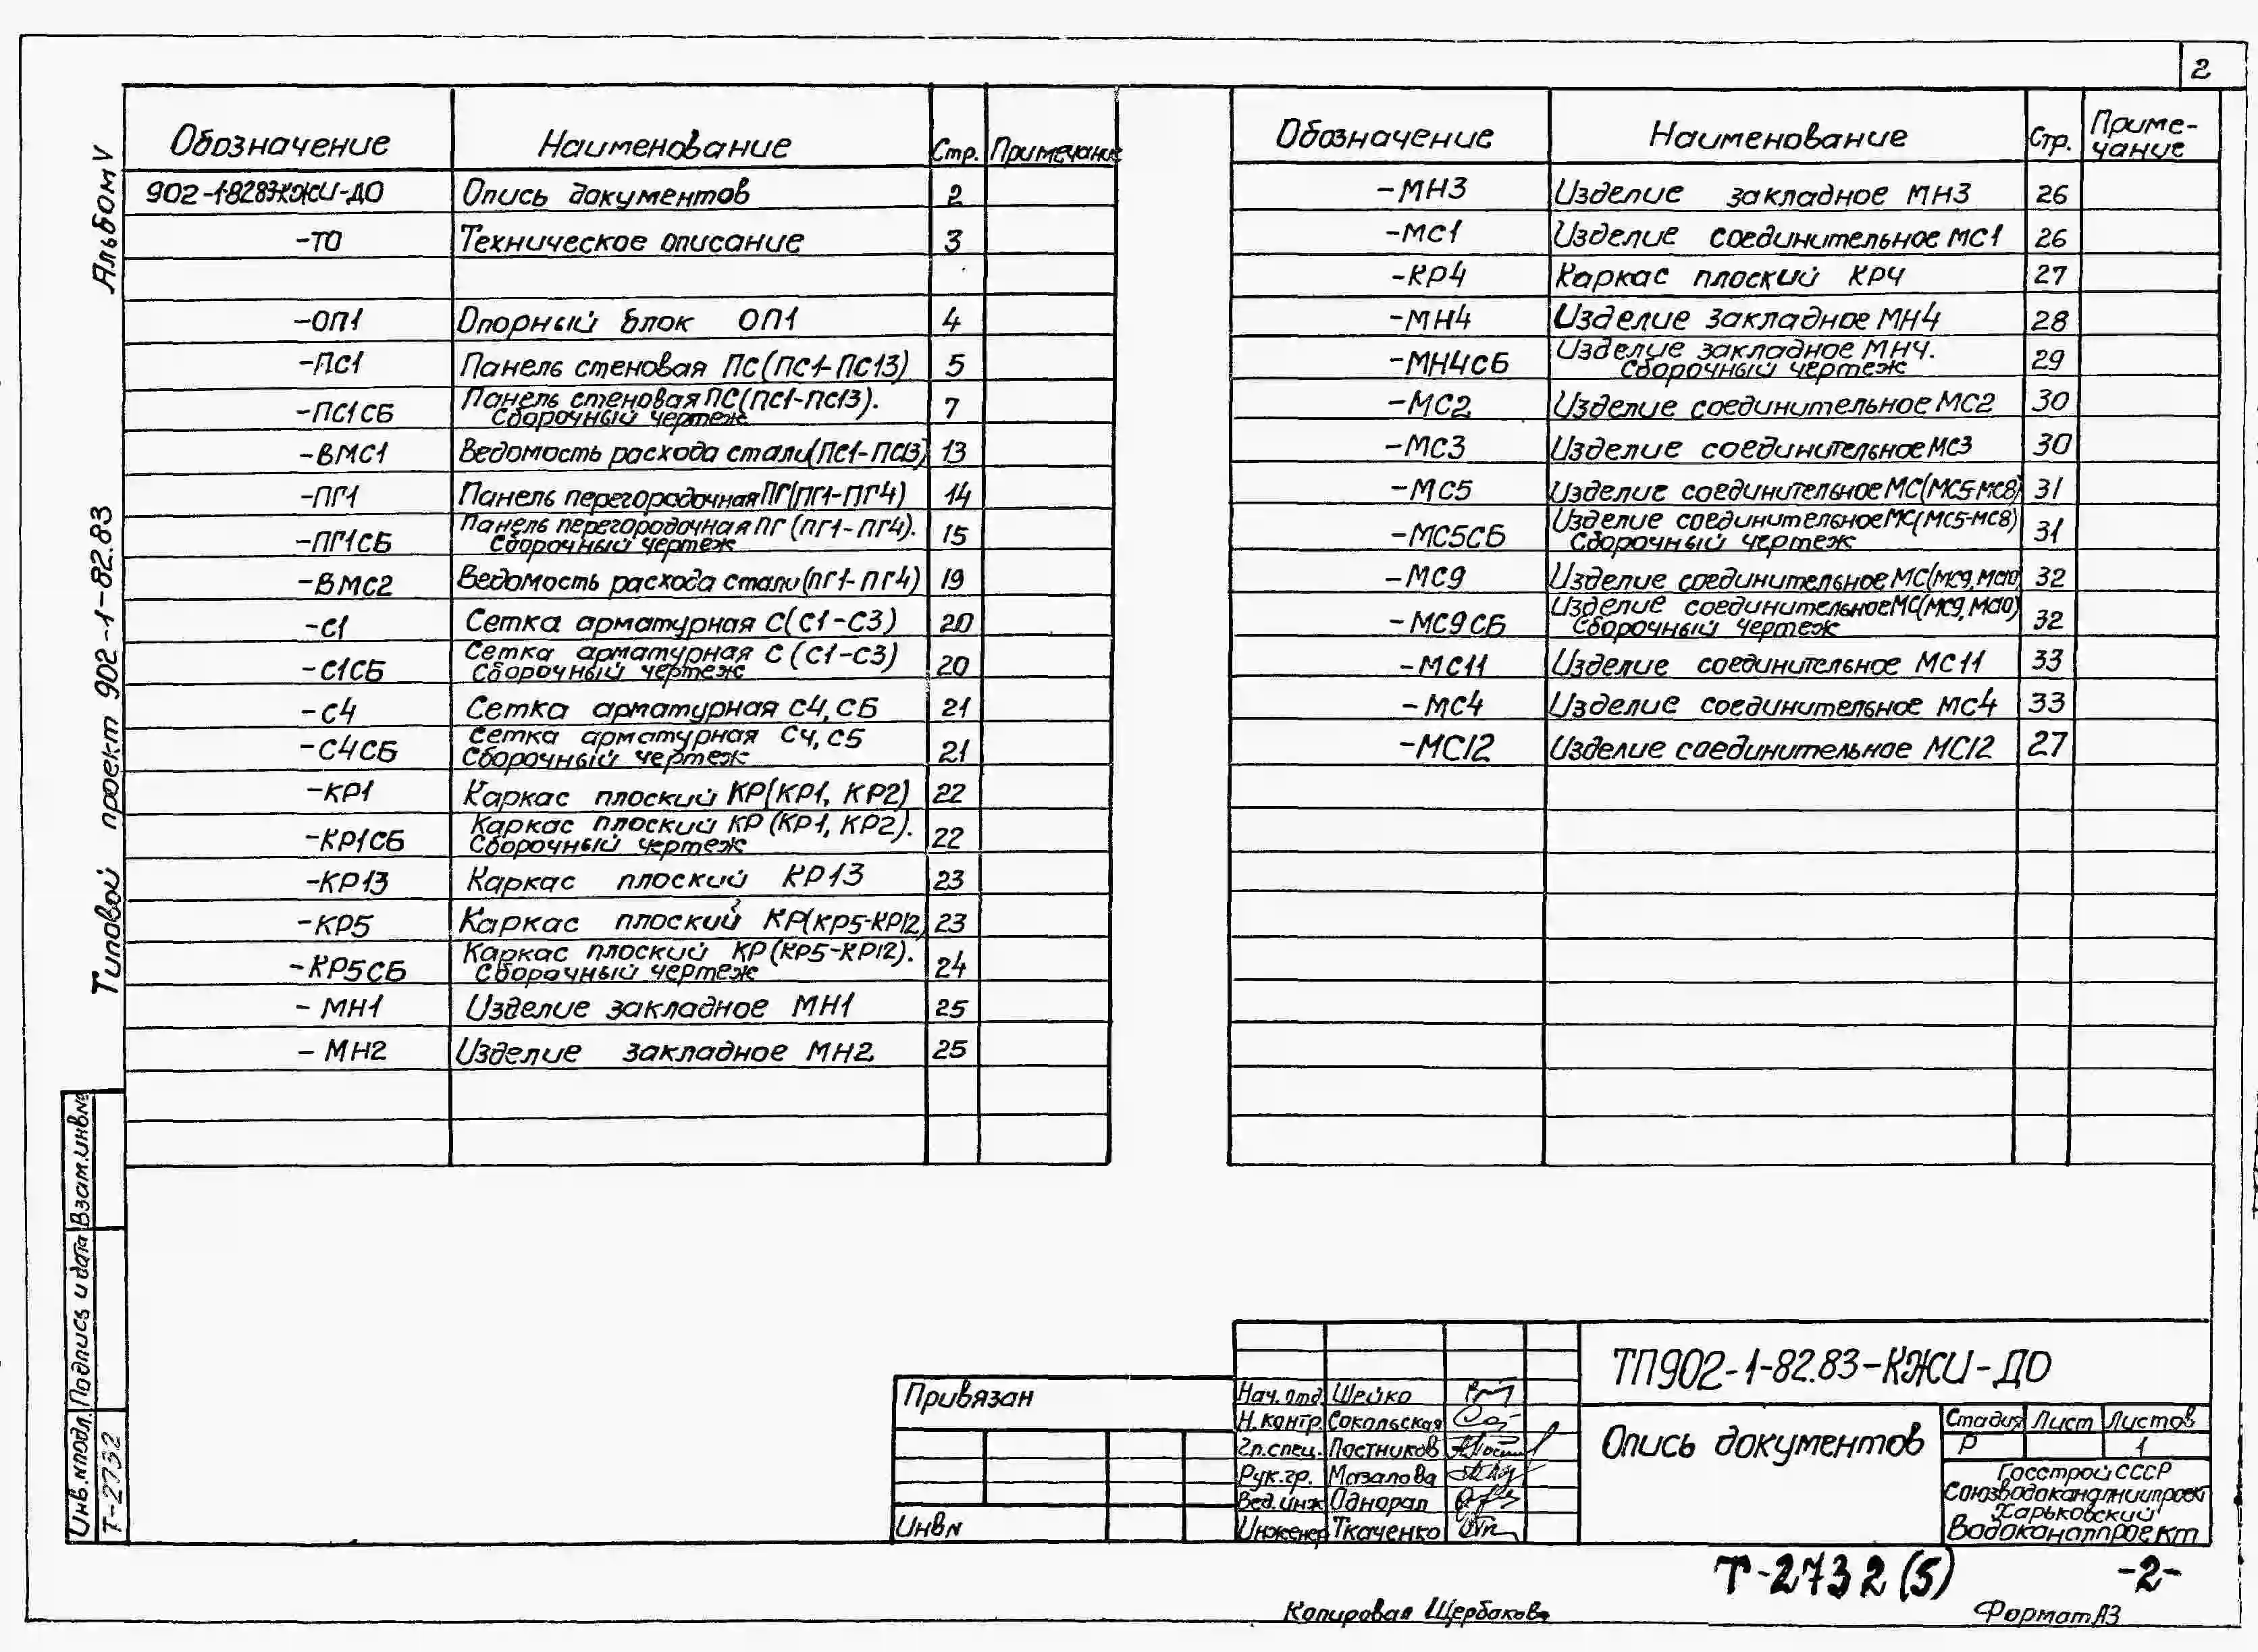 2
Альбом V
Типовой проект 902-1-82.83
Обозначение Наименование Стр. Примечание
902-18283КЖИ-ДО Опись документов 2
-ТО Техническое описание 3
-ОП1 Опорный блок ОП1 4
-ПС1 Панель стеновая ПС(ПС1-ПС13) 5
-ПС1СБ Панель стеновая ПС(ПС1-ПС13).
Сборочный чертеж 7
-ВМС1 Ведомость расхода стали(ПС1-ПС13) 13
-ПГ1 Панель перегородочная ПГ(ПГ1-ПГ4) 14
-ПГ1СБ Панель перегородочная ПГ (ПГ1-ПГ4).
Сборочный чертеж 15
-ВМС2 Ведомость расхода стали(ПГ1-ПГ4) 19
-С1 Сетка арматурная С(С1-С3) 20
-С1СБ Сетка арматурная С (С1-С3)
Сборочный чертеж 20
-С4 Сетка арматурная С4, СБ 21
-С4СБ Сетка арматурная С4, С5
Сборочный чертеж 21
-КР1 Каркас плоский КР(КР1, КР2) 22
-КР1СБ Каркас плоский КР (КР1, КР2).
Сборочный чертеж 22
-КР13 Каркас плоский КР13 23
-КР5 Каркас плоский КР(КР5-КР12) 23
-КР5СБ Каркас плоский КР (КР5-КР12).
Сборочный чертеж 24
- МН1 Изделие закладное МН1 25
- МН2 Изделие закладное МН2 25
Обозначение Наименование Стр. Приме-
чание
-МН3 Изделие закладное МН3 26
-МС1 Изделие соединительное МС1 26
-КР4 Каркас плоский КР4 27
-МН4 Изделие закладное МН4 28
-МН4СБ Изделие закладное МН4.
Сборочный чертеж 29
-МС2 Изделие соединительное МС2 30
-МС3 Изделие соединительное МС3 30
-МС5 Изделие соединительное МС(МС5-МС8) 31
-МС5СБ Изделие соединительное МС(МС5-МС8)
Сборочный чертеж 31
-МС9 Изделие соединительное МС(МС9, МС10) 32
-МС9СБ Изделие соединительное МС(МС9, МС10)
Сборочный чертеж 32
-МС11 Изделие соединительное МС11 33
-МС4 Изделие соединительное МС4 33
-МС12 Изделие соединительное МС12 27
Взам.инв№
Подпись и дата
Инв.№подл.
Т-2732
Привязан
Инв№
Нач.отд. Шейко
Н.контр. Сокольская
Гл.спец. Постников
Рук.гр. Мазалова
Вед.инж Однорал
Инженер Ткаченко
ТП902-1-82.83-КЖИ-ДО
Опись документов
Стадия Лист Листов
Р 1
Госстрой СССР
Союзводоканалниипроект
Харьковский
Водоканалпроект
Т-2732(5) -2-
Копировал Щербакова
Формат А3